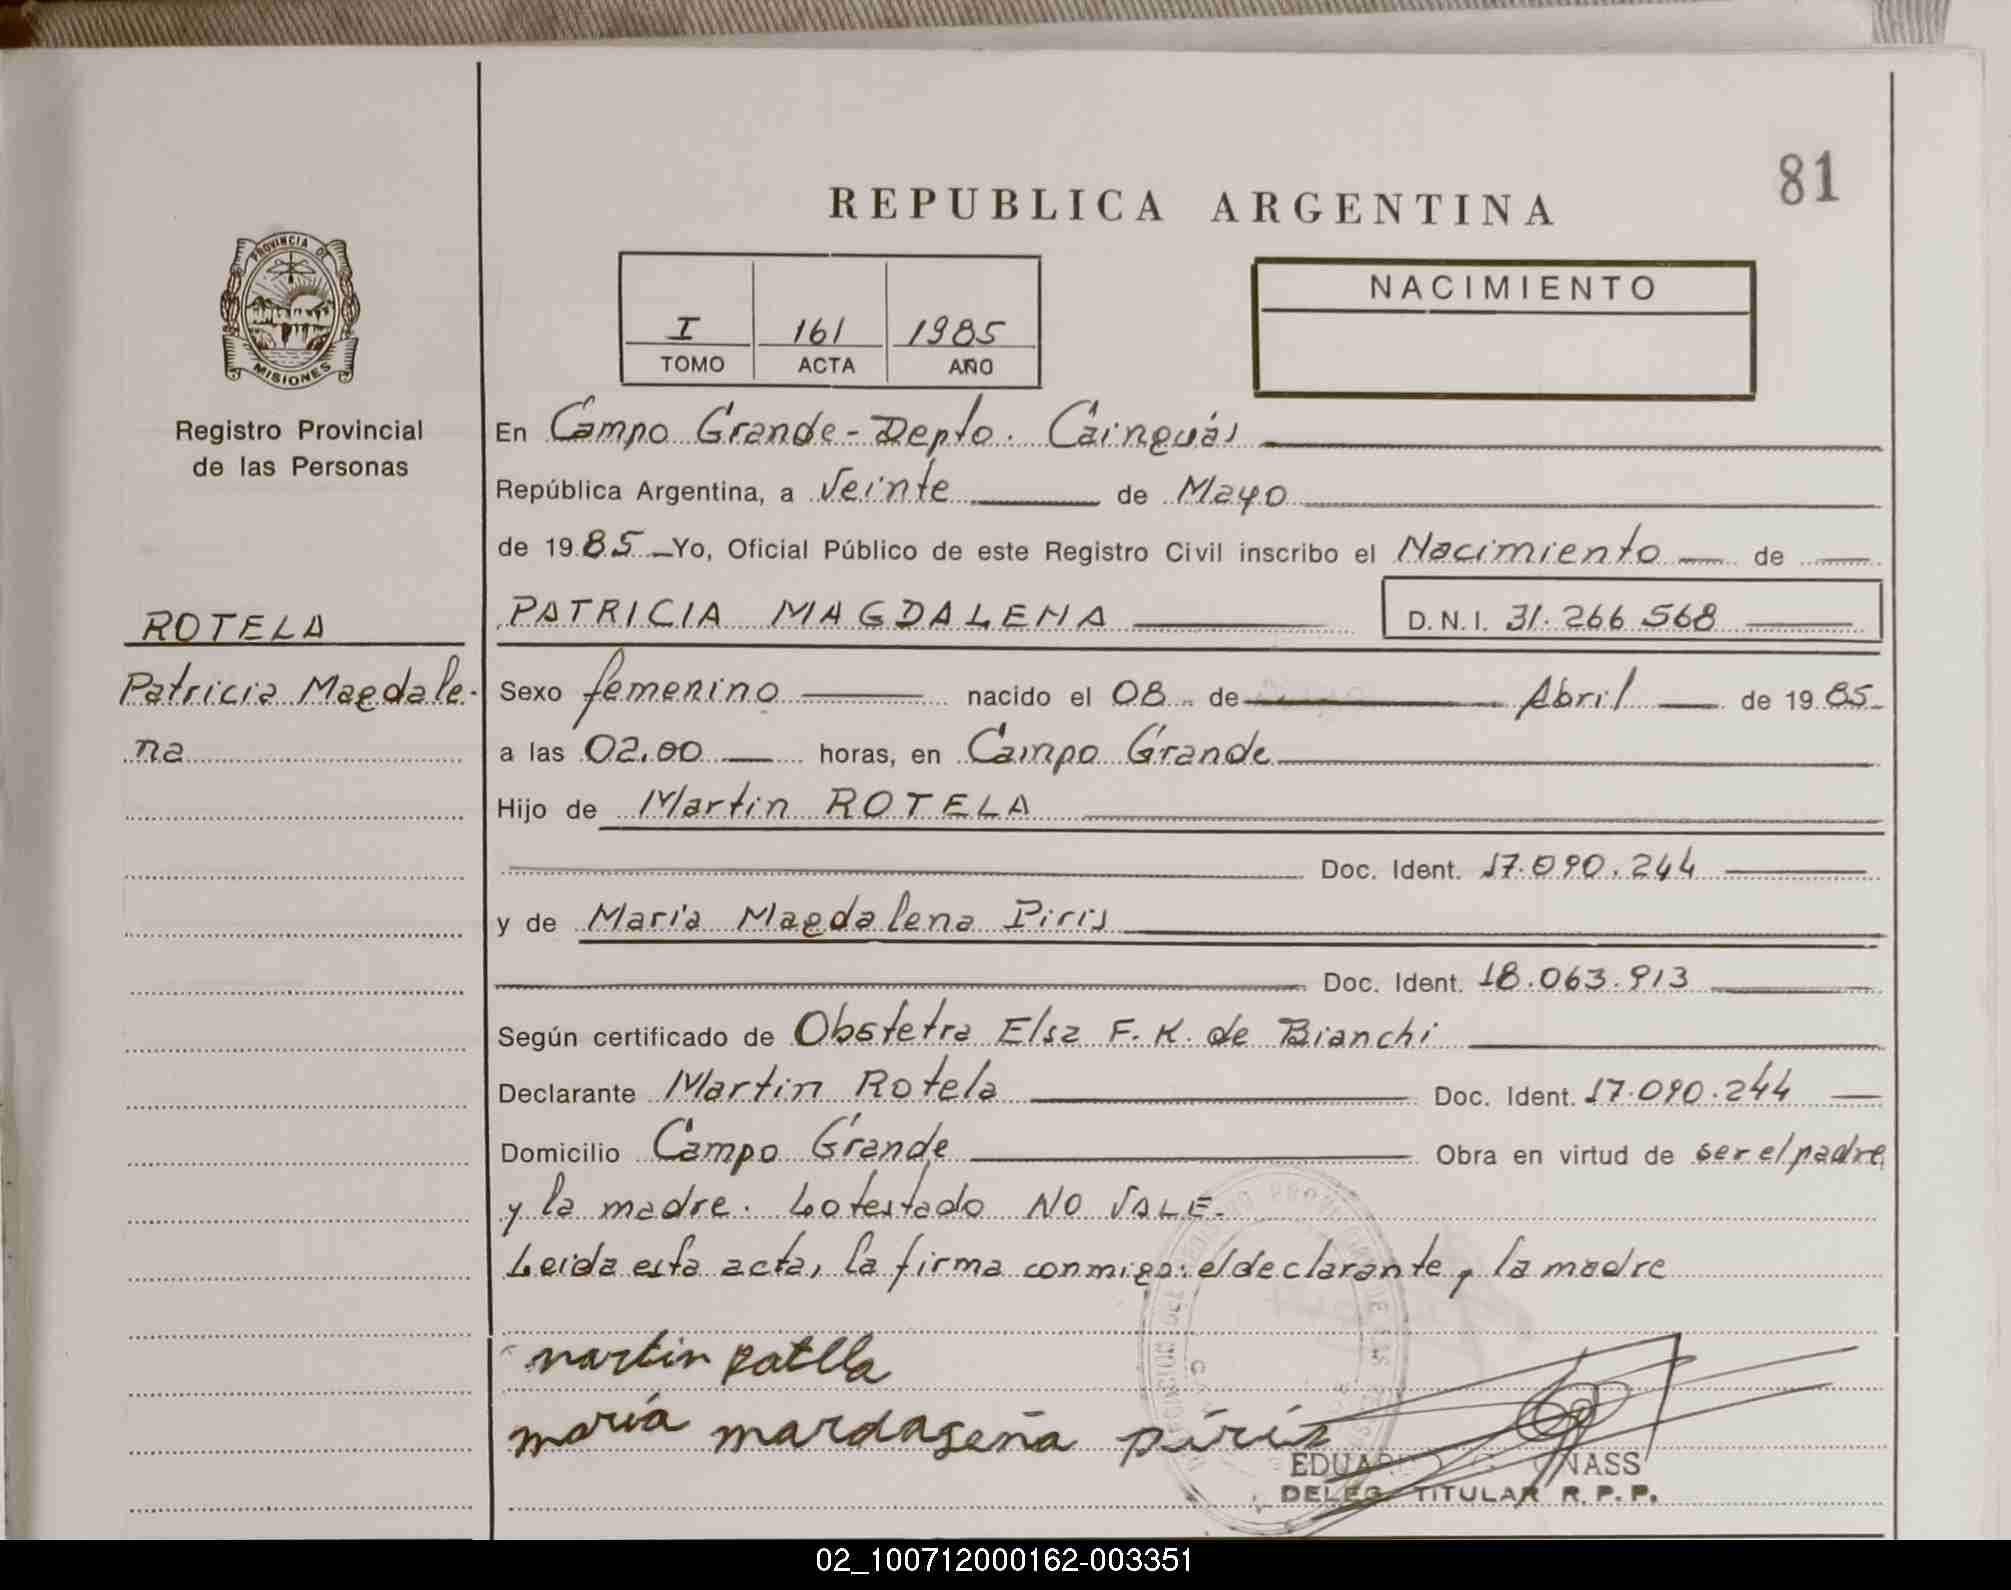 81
REPUBLICA ARGENTINA
PROVINCIA DE
MISIONES
Registro Provincial
de las Personas
I 161 1985
TOMO ACTA AÑO
NACIMIENTO
En Campo Grande - Depto. Cainguás
República Argentina, a Veinte de Mayo
de 1985 Yo, Oficial Público de este Registro Civil inscribo el Nacimiento de
ROTELA
PATRICIA MAGDALENA D.N.I. 31.266.568
Patricia Magdale-
na
Sexo femenino nacido el 08 de Abril de 1985
a las 02.00 horas, en Campo Grande
Hijo de Martin ROTELA
Doc. Ident. 17.090.244
y de María Magdalena Piris
Doc. Ident. 18.063.913
Según certificado de Obstetra Elsa F. K. de Bianchi
Declarante Martin Rotela Doc. Ident. 17.090.244
Domicilio Campo Grande Obra en virtud de ser el padre
y la madre. Lo testado NO VALE.
Leida esta acta, la firma conmigo: el declarante y la madre
martin
maría mardageña piriz
EDUARDO G.
DELEG. TITULAR R. P. P.
02_100712000162-003351